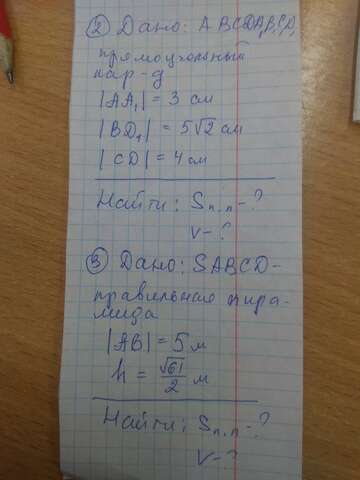 ② Дано: ABCDA₁B₁C₁D₁
прямоугольный
пар-д
|AA₁| = 3 см
|BD₁| = 5√2 см
|CD| = 4 см
Найти: Sп.п - ?
V - ?
③ Дано: SABCD -
правильная пира-
мида
|AB| = 5 м
h = √61/2 м
Найти: Sп.п - ?
V - ?